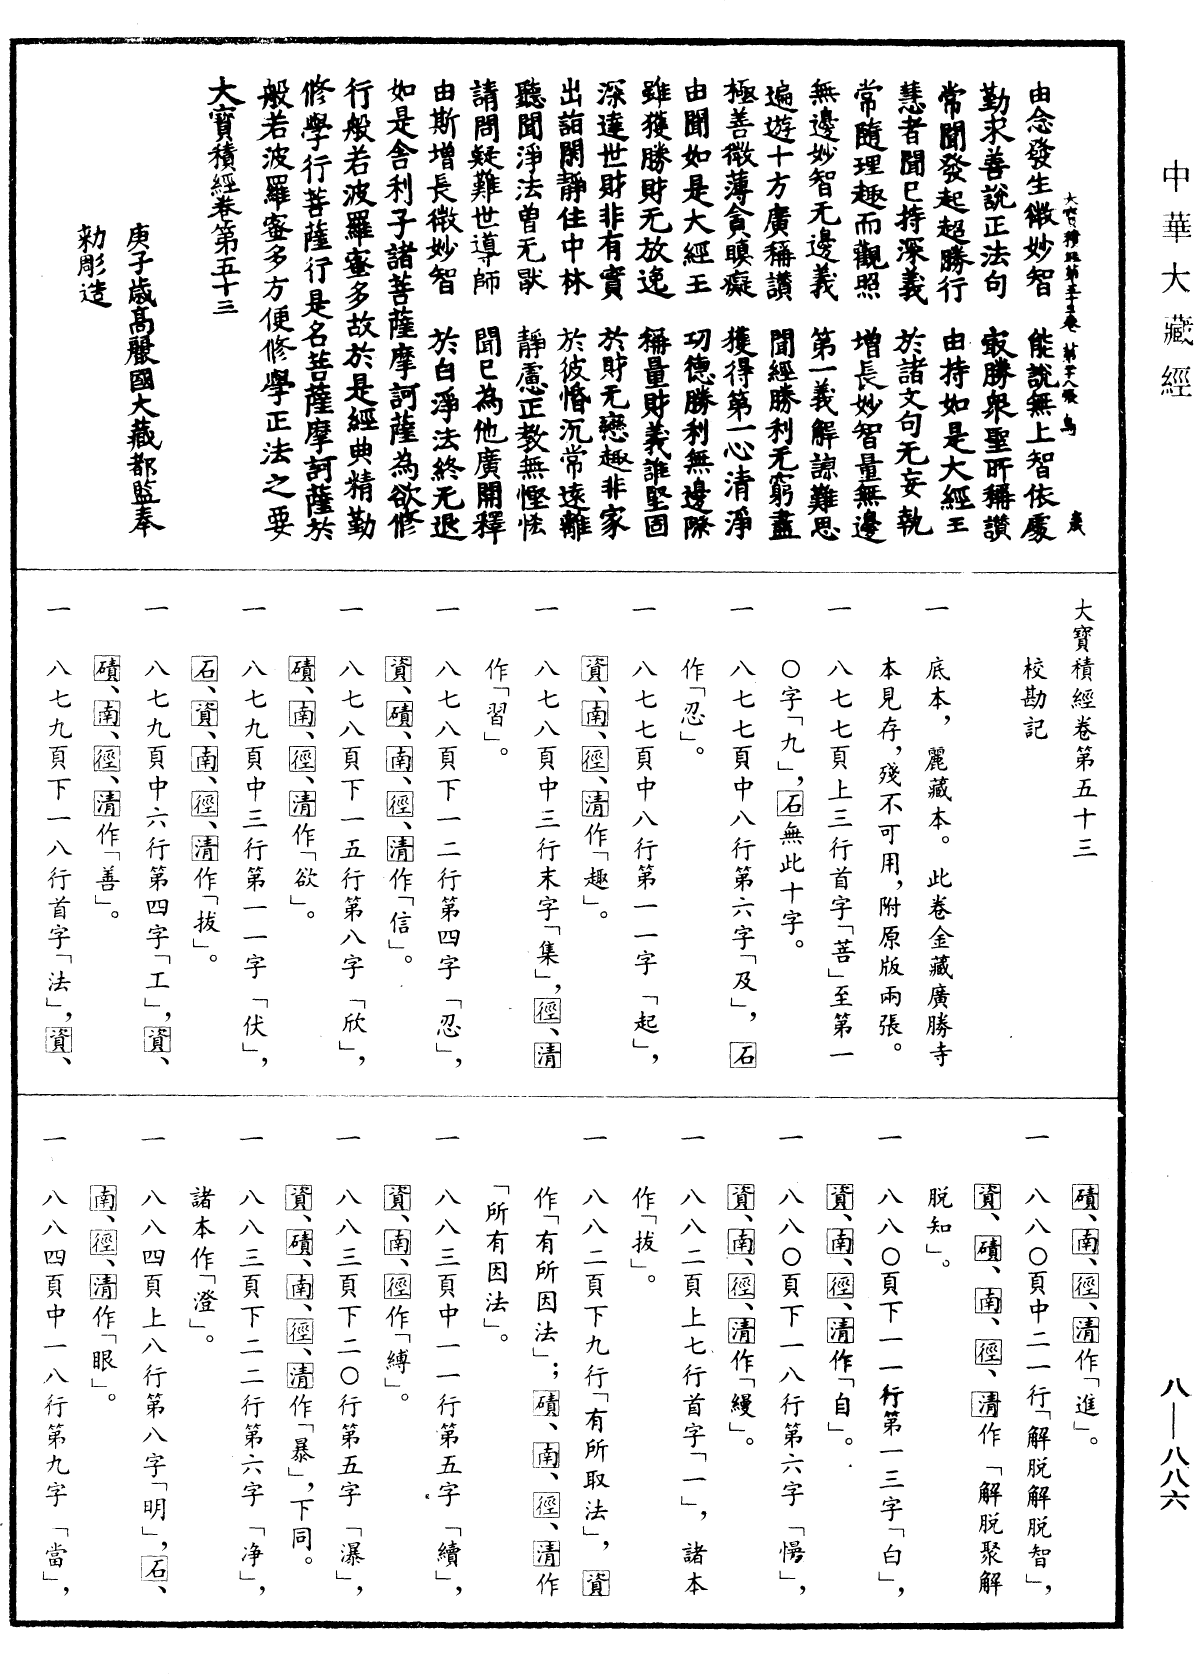 中華大藏經
由念發生微妙智　能說無上智依處
大寶積經第五十三卷　第廿八張　鳥
勤求善說正法句　㝡勝衆聖所稱讚
常聞發起超勝行　由持如是大經王
慧者聞已持深義　於諸文句无妄執
常隨理趣而觀照　增長妙智量無邊
無邊妙智无邊義　第一義解諒難思
遍遊十方廣稱讚　聞經勝利无窮盡
極善微薄貪瞋癡　獲得第一心清淨
由聞如是大經王　功德勝利無邊際
雖獲勝財无放逸　稱量財義誰堅固
深達世財非有實　於財无戀趣非家
出詣閑靜住中林　於彼惛沉常遠離
聽聞淨法曾无猒　靜慮正教無慳怯
請問疑難世導師　聞已為他廣開釋
由斯增長微妙智　於白淨法終无退
如是舍利子諸菩薩摩訶薩為欲修
行般若波羅蜜多故於是經典精勤
修學行菩薩行是名菩薩摩訶薩於
般若波羅蜜多方便修學正法之要
大寶積經卷第五十三
庚子歲高麗國大藏都監奉
勑彫造
大寶積經卷第五十三
校勘記
一　底本，麗藏本。此卷金藏廣勝寺
本見存，殘不可用，附原版兩張。
一　八七七頁上三行首字「菩」至第一
〇字「九」，石無此十字。
一　八七七頁中八行第六字「及」，石
作「忍」。
一　八七七頁中八行第一一字「起」，
資、南、徑、清作「趣」。
一　八七八頁中三行末字「集」，徑、清
作「習」。
一　八七八頁下一二行第四字「忍」，
資、磧、南、徑、清作「信」。
一　八七八頁下一五行第八字「欣」，
磧、南、徑、清作「欲」。
一　八七九頁中三行第一一字「伏」，
石、資、南、徑、清作「拔」。
一　八七九頁中六行第四字「工」，資、
磧、南、徑、清作「善」。
一　八七九頁下一八行首字「法」，資、
磧、南、徑、清作「進」。
一　八八〇頁中二一行「解脫解脫智」，
資、磧、南、徑、清作「解脫聚解
脫知」。
一　八八〇頁下一一行第一三字「白」，
資、南、徑、清作「自」。
一　八八〇頁下一八行第六字「愓」，
資、南、徑、清作「縵」。
一　八八二頁上七行首字「一」，諸本
作「拔」。
一　八八二頁下九行「有所取法」，資
作「有所因法」；磧、南、徑、清作
「所有因法」。
一　八八三頁中一一行第五字「續」，
資、南、徑作「縛」。
一　八八三頁下二〇行第五字「瀑」，
資、磧、南、徑、清作「暴」，下同。
一　八八三頁下二二行第六字「净」，
諸本作「澄」。
一　八八四頁上八行第八字「明」，石、
南、徑、清作「眼」。
一　八八四頁中一八行第九字「當」，
八—八八六